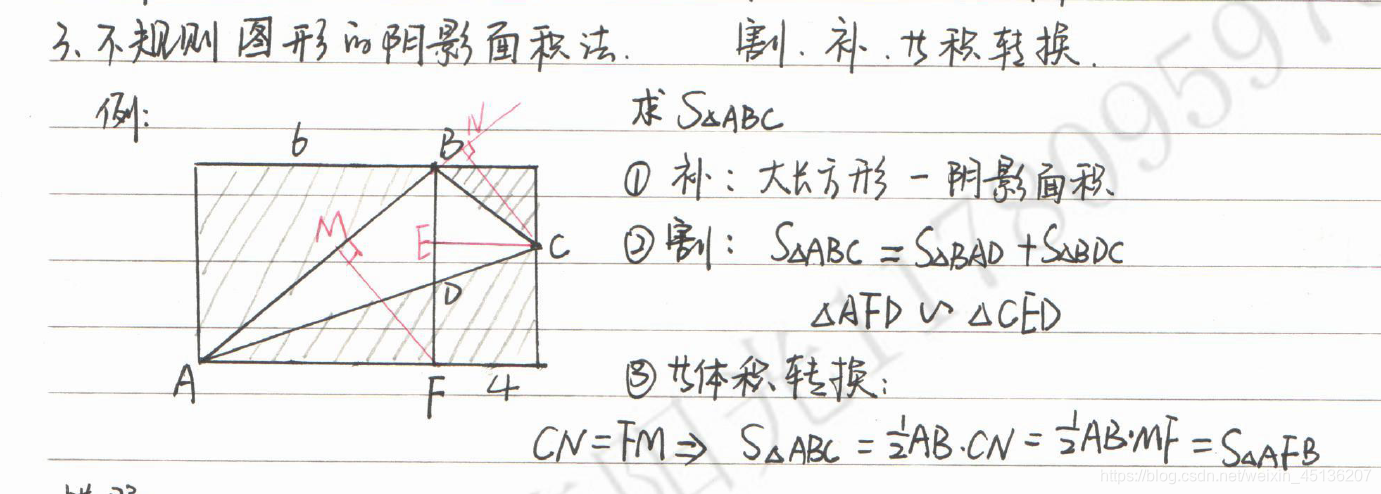 3、不规则图形的阴影面积法. 割. 补. 等积转换.
例:
求 S△ABC
6 B N
① 补: 大长方形 - 阴影面积.
M E C
② 割: S△ABC = S△BAD + S△BDC
D
△AFD ∽ △CED
A F 4
③ 等体积转换:
CN = FM ⇒ S△ABC = ½AB·CN = ½AB·MF = S△AFB
https://blog.csdn.net/weixin_45136207